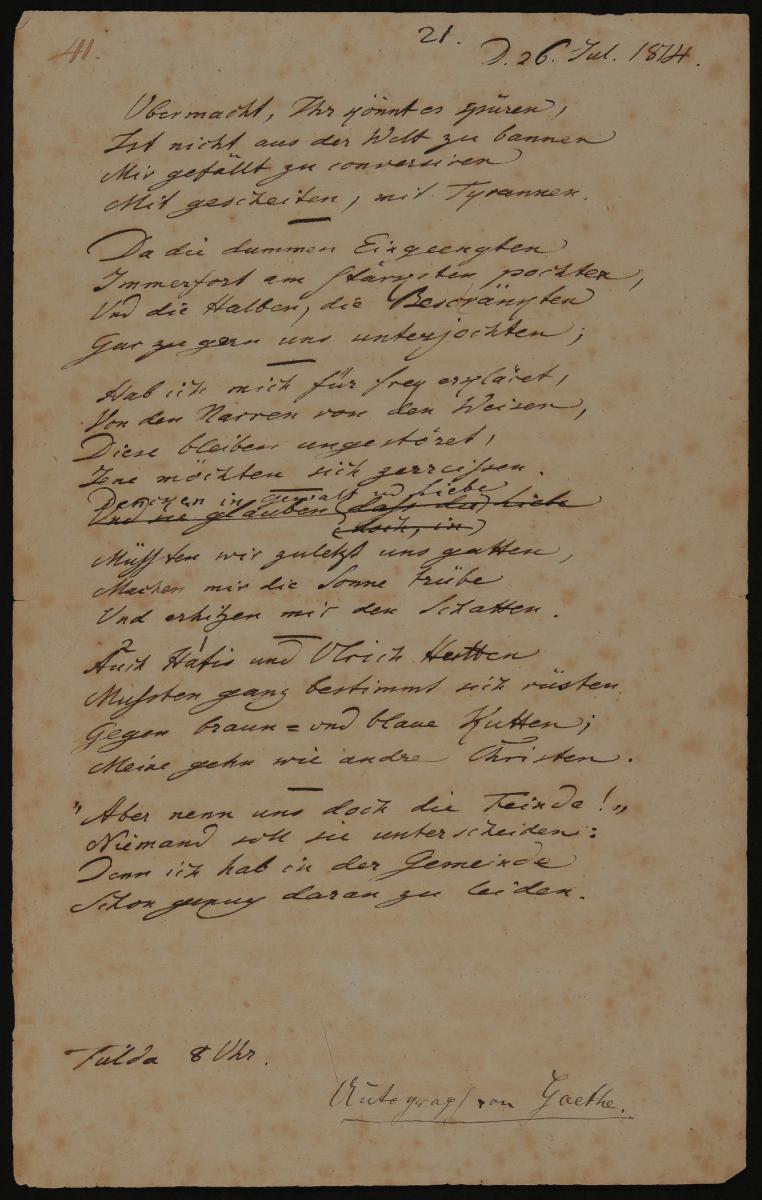 41.
21.
D. 26. Jul. 1814.
Übermacht, Ihr könnt es spüren,
Ist nicht aus der Welt zu bannen
Mir gefällt zu conversiren
Mit gescheiten, mit Tyrannen.
Da die dummen Eingeengten
Immerfort am stärcksten pochten,
Und die Halben, die Beschränckten
Gar zu gern uns unterjochten;
Hab ich mich für frey erkläret,
Von den Narren von den Weisen,
Diese bleiben ungestöret,
Jene möchten sich zerreissen.
Dencken in Gewalt und Liebe
Und sie glauben (dass die) Liebe
(doch, in)
Müssten wir zuletzt uns gatten,
Machen mir die Sonne trübe
Und erhitzen mir den Schatten.
Auch Hafis und Ulrich Hutten
Mussten ganz bestimmt sich rüsten
Gegen braun= und blaue Kutten;
Meine gehn wie andre Christen.
"Aber nenn uns doch die Feinde!"
Niemand soll sie unterscheiden:
Denn ich hab in der Gemeinde
Schon genug daran zu leiden.
Fulda 8 Uhr.
Autograph von Goethe.